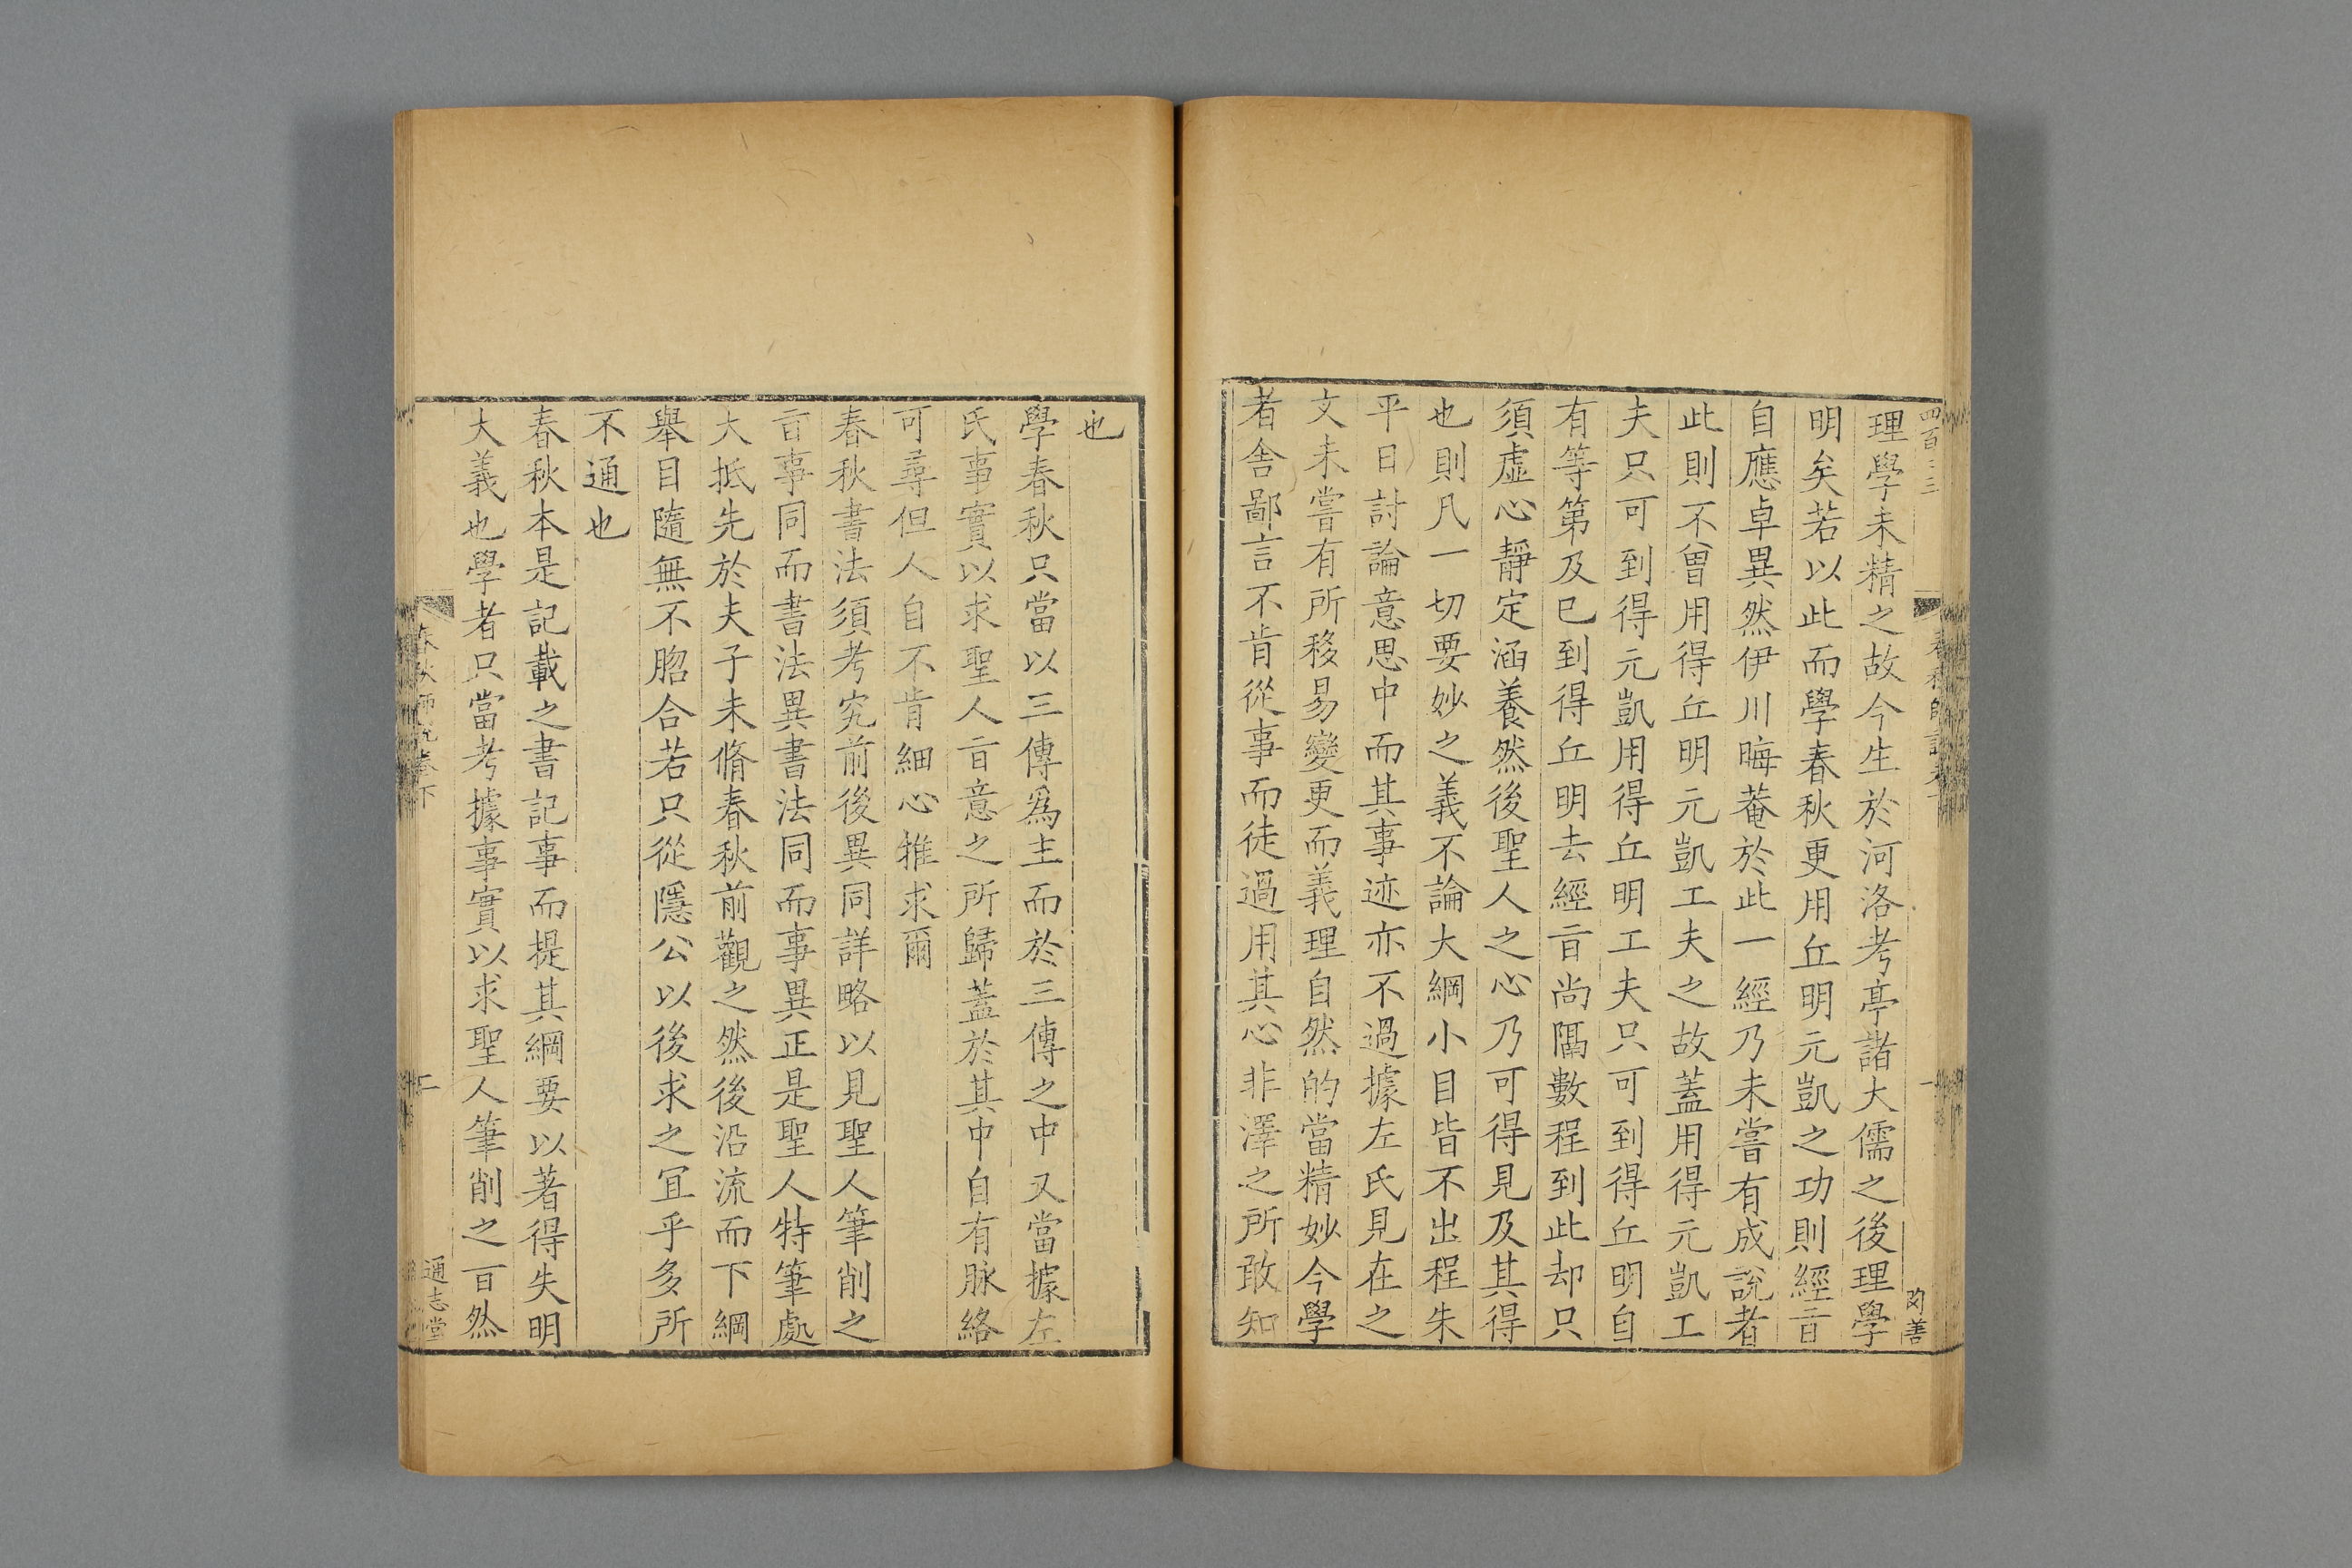 四百三三
理學未精之故今生於河洛考亭諸大儒之後理學
明矣若以此而學春秋更用丘明元凱之功則經㫖
自應卓異然伊川晦菴於此一經乃未嘗有成說者
此則不曾用得丘明元凱工夫之故蓋用得元凱工
夫只可到得元凱用得丘明工夫只可到得丘明自
有等第及已到得丘明去經㫖尚隔數程到此却只
須虛心靜定涵養然後聖人之心乃可得見及其得
也則凡一切要妙之義不論大綱小目皆不出程朱
平日討論意思中而其事迹亦不過據左氏見在之
文未嘗有所移易變更而義理自然的當精妙今學
者舍鄙言不肯從事而徒過用其心非澤之所敢知
也
學春秋只當以三傳爲主而於三傳之中又當據左
氏事實以求聖人㫖意之所歸蓋於其中自有脉絡
可尋但人自不肯細心推求爾
春秋書法須考究前後異同詳略以見聖人筆削之
㫖事同而書法異書法同而事異正是聖人特筆處
大抵先於夫子未脩春秋前觀之然後沿流而下綱
舉目隨無不脗合若只從隱公以後求之冝乎多所
不通也
春秋本是記載之書記事而提其綱要以著得失明
大義也學者只當考據事實以求聖人筆削之㫖然
春秋師說卷下
二
通志堂